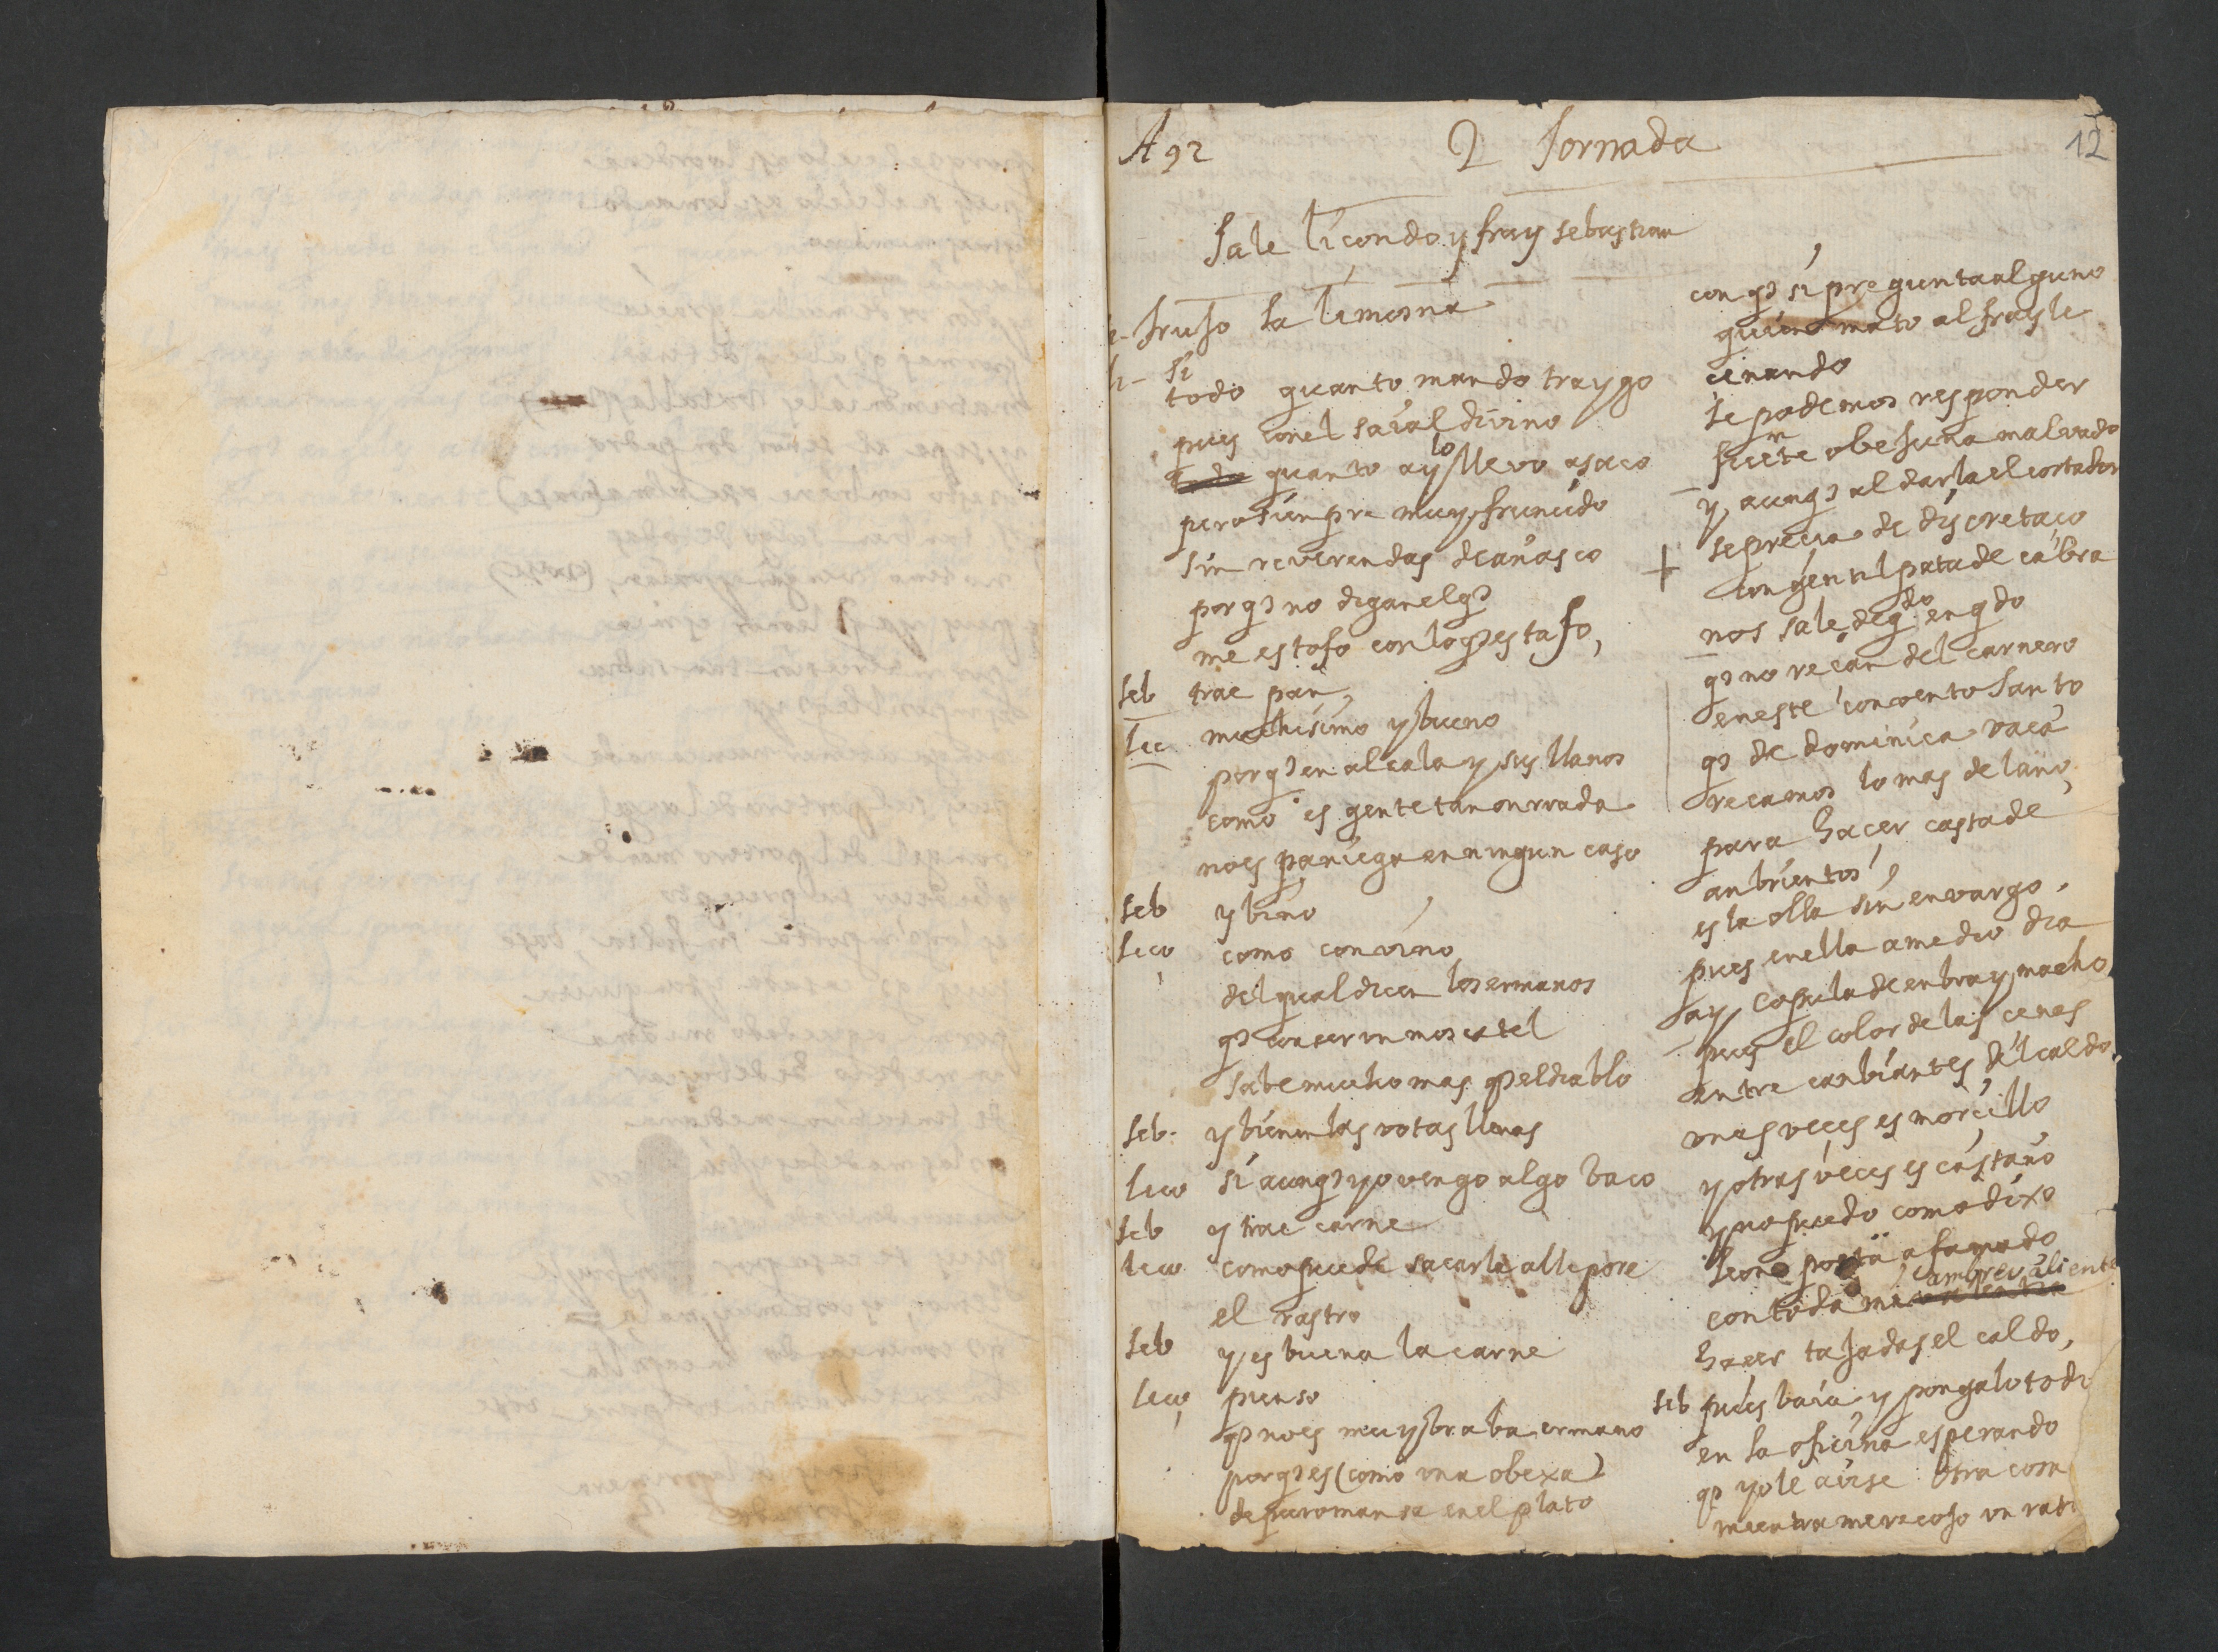 A 92
2 Jornada
12
Sale licondo y fray sebastian
- trujo la limosna
si
todo quanto mando traygo
pues con el saial divino
todo quanto ay lo llevo a saco
pero sienpre muy fruncido
sin reverendas de añasco
por q̃ no digan el q̃
me estofo con lo q̃ estafo,
seb trae pan,
lic muchisimo y bueno
porq̃ en alcala y sus llanos
como es gente tan onrrada
no es paniega en ningun caso
seb y bino
lico como convino
del qual dicen los ermanos
q̃ con ser un moscatel
sabe mucho mas q̃ el diablo
seb. y bienen las votas llenas
lico si aunq̃ yo vengo algo baco
seb y trae carne
lico como puede sacarle alli pore
el rastro
seb y es buena la carne
lico pienso
q̃ no es muy braba ermano
porq̃ es (como una obexa)
de puro mansa en el plato
con q̃ si pregunta alguno
quien mato al frayle
cenando
le podemos responder
fuente obejuna malvado
y aunq̃ al darla el cortador
se precia de discretaço
con gentil pata de cabra
nos sale de q.do en q.do
q̃ no recan del carnero
en este convento santo
q̃ de dominica vaca
recamos lo mas del año,
para hacer casta de
anbrientos,
es la olla sin envargo,
pues en ella a medio dia
ay copula de enbra y macho
pues el color de las cenas
entre canbiantes del caldo
unas veces es morcillo
y otras veces es castaño
y no puedo como dixo
leono afamado
con toda mi ambre valiente
hacer tajadas el caldo,
seb pues baia y pongalo todo
en la oficina esperando
q̃ yo le avise otra com
mientra me recojo un rato